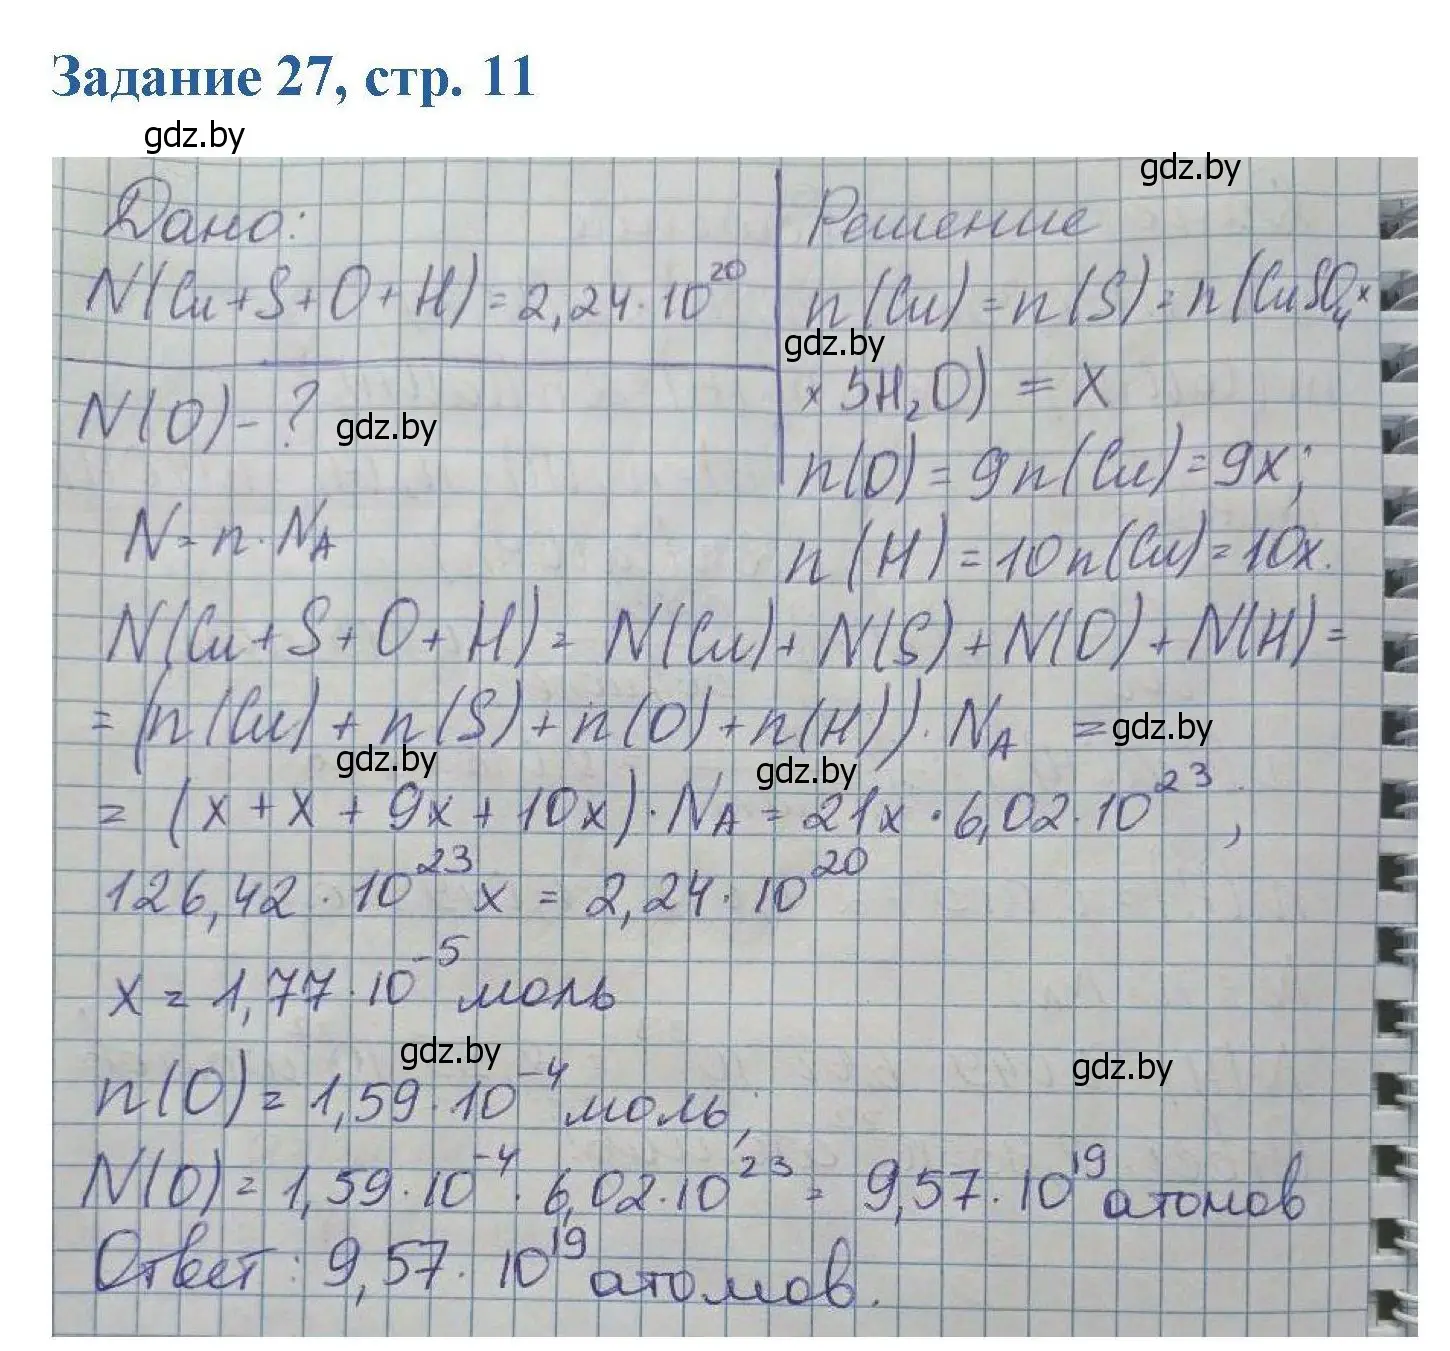 Задание 27, стр. 11
gdz.by
gdz.by
Дано:
N(Cu+S+O+H)=2,24·10²⁰
N(O)-?
gdz.by
N=n·Nₐ
Решение
n(Cu)=n(S)=n(CuSO₄×
gdz.by
×5H₂O)=x
n(O)=9n(Cu)=9x;
n(H)=10n(Cu)=10x.
N(Cu+S+O+H)=N(Cu)+N(S)+N(O)+N(H)=
=(n(Cu)+n(S)+n(O)+n(H))·Nₐ =
gdz.by
gdz.by
gdz.by
=(x+x+9x+10x)·Nₐ=21x·6,02·10²³;
126,42·10²³x=2,24·10²⁰
x=1,77·10⁻⁵моль
gdz.by
gdz.by
n(O)=1,59·10⁻⁴моль;
N(O)=1,59·10⁻⁴·6,02·10²³=9,57·10¹⁹атомов
Ответ: 9,57·10¹⁹атомов.